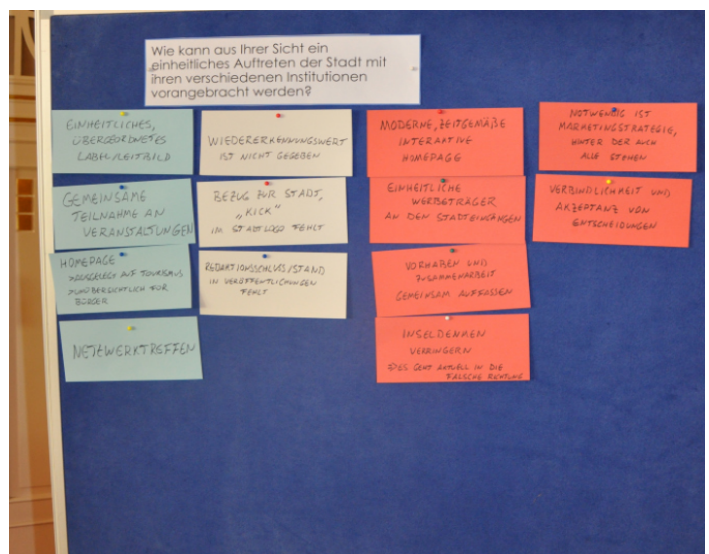 Wie kann aus Ihrer Sicht ein
einheitliches Auftreten der Stadt mit
ihren verschiedenen Institutionen
vorangebracht werden?
EINHEITLICHES,
ÜBERGEORDNETES
LABEL/LEITBILD
GEMEINSAME
TEILNAHME AN
VERANSTALTUNGEN
HOMEPAGE
>AUSGELEGT AUF TOURISMUS
>UNÜBERSICHTLICH FÜR
BÜRGER
NETZWERKTREFFEN
WIEDERERKENNUNGSWERT
IST NICHT GEGEBEN
BEZUG ZUR STADT,
„KICK"
IM STADTLOGO FEHLT
REDAKTIONSSCHLUSS/STAND
IN VERÖFFENTLICHUNGEN
FEHLT
MODERNE, ZEITGEMÄßE
INTERAKTIVE
HOMEPAGE
EINHEITLICHE
WERBETRÄGER
AN DEN STADTEINGÄNGEN
VORHABEN UND
ZUSAMMENARBEIT
GEMEINSAM AUFFASSEN
INSELDENKEN
VERRINGERN
>DIES GEHT AKTUELL IN DIE
FALSCHE RICHTUNG
NOTWENDIG IST
MARKETINGSTRATEGIE,
HINTER DER AUCH
ALLE STEHEN
VERBINDLICHKEIT UND
AKZEPTANZ VON
ENTSCHEIDUNGEN